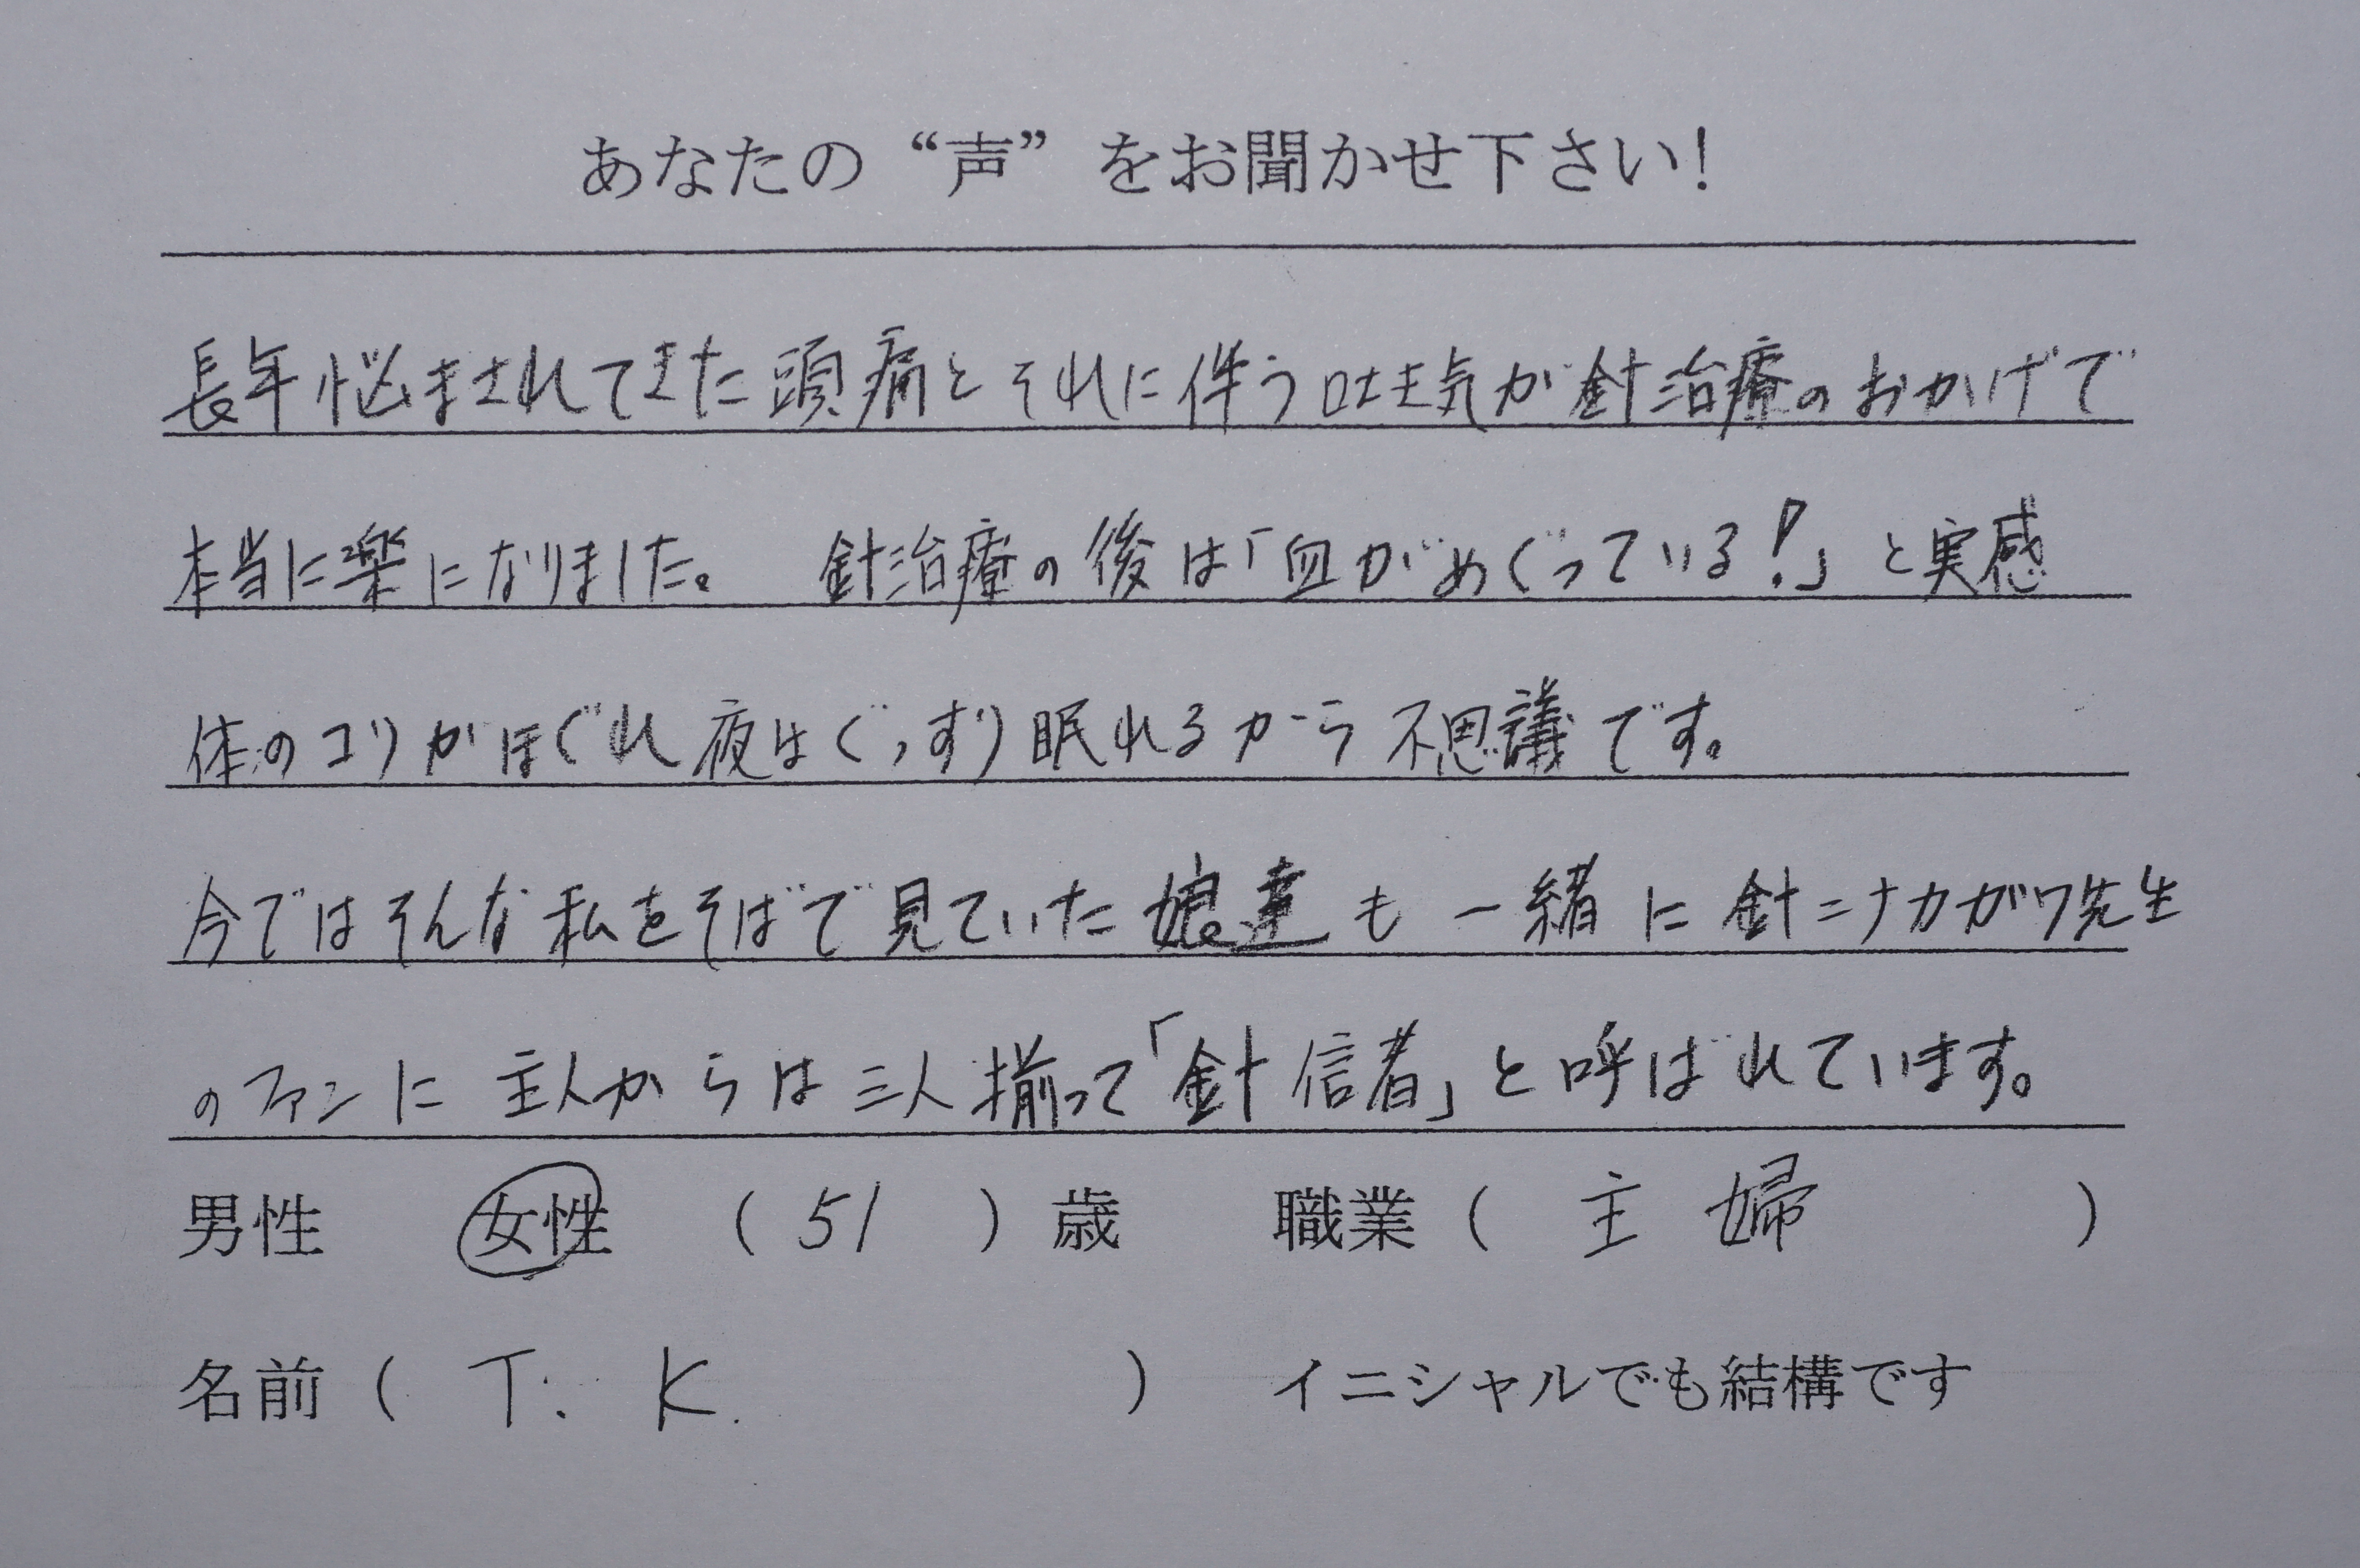 あなたの“声”をお聞かせ下さい!
長年悩まされてきた頭痛とそれに伴う吐き気が針治療のおかげで
本当に楽になりました。 針治療の後は「血がめぐっている!」と実感
体のコリがほぐれ夜はぐっすり眠れるから不思議です。
今ではそんな私をそばで見ていた娘達も一緒に針ニナカガワ先生
のファンに 主人からは三人揃って「針信者」と呼ばれています。
男性 女性 ( 51 ) 歳 職業 ( 主婦 )
名前 ( T. K. ) イニシャルでも結構です